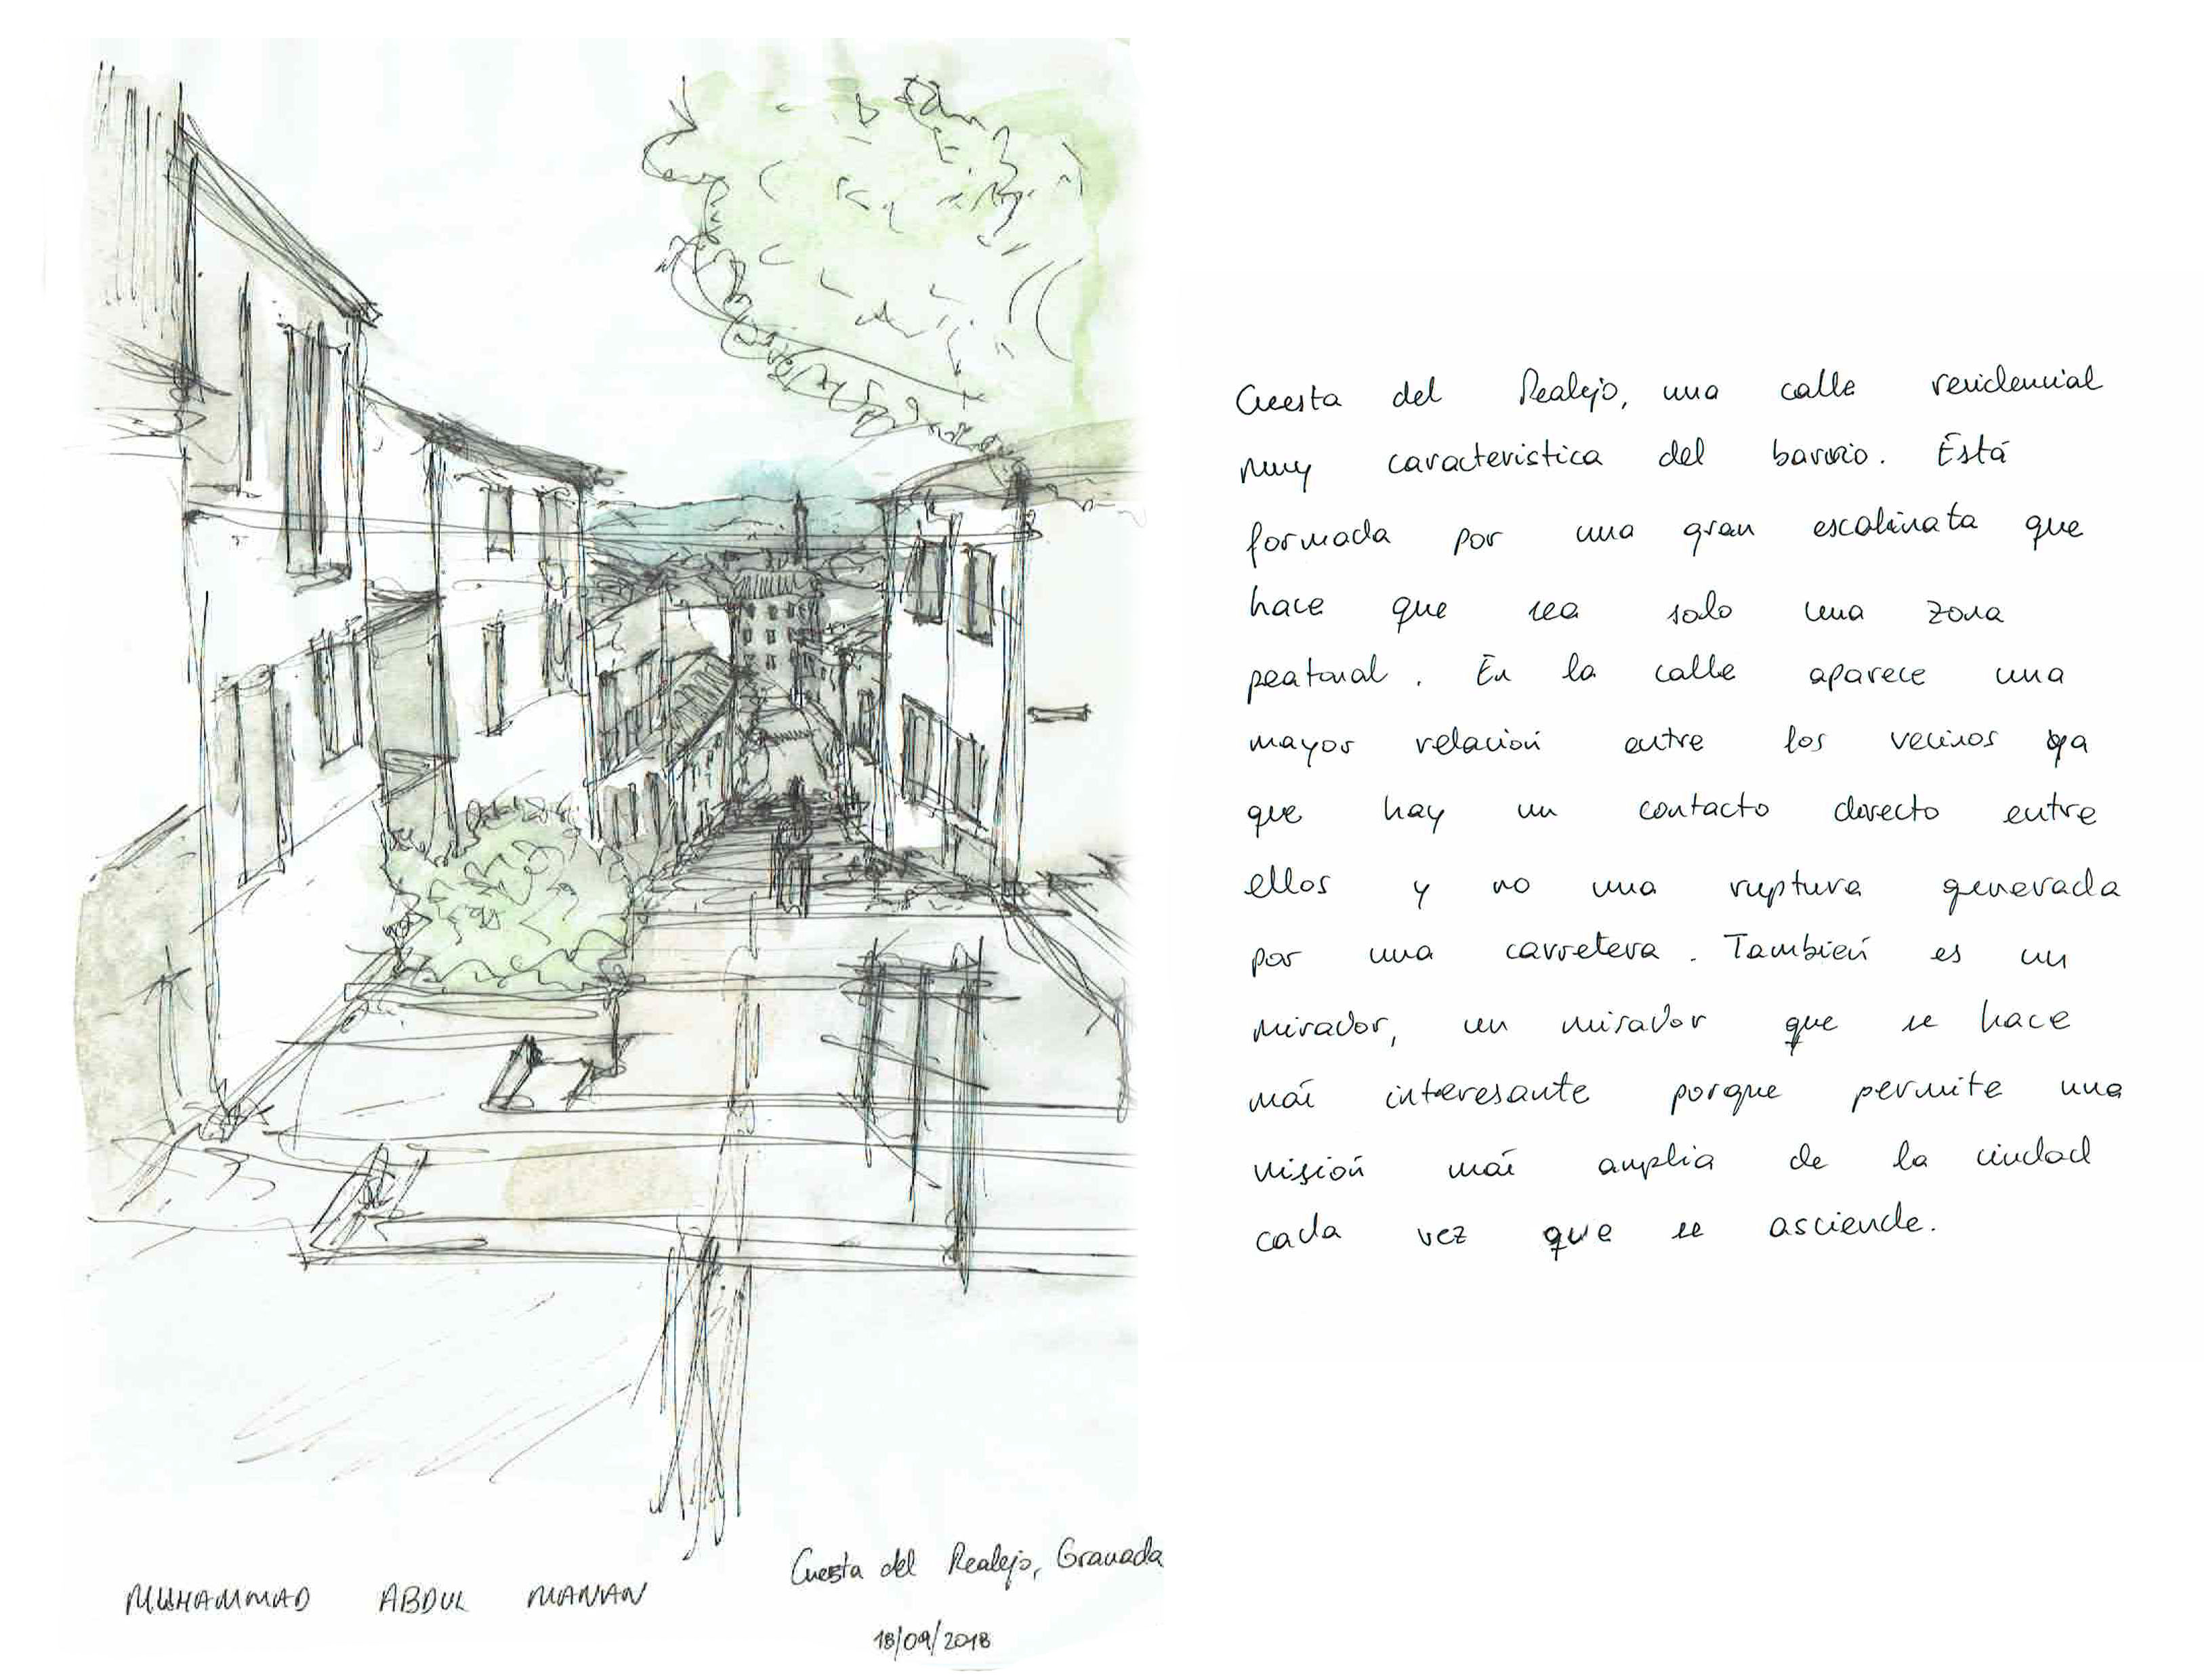 MUHAMMAD ABDUL MANAN
Cuesta del Realejo, Granada
18/09/2018
Cuesta del Realejo, una calle residencial
muy caracteristica del barrio. Está
formada por una gran escalinata que
hace que sea solo una zona
peatonal. En la calle aparece una
mayor relación entre los vecinos ya
que hay un contacto directo entre
ellos y no una ruptura generada
por una carretera. También es un
mirador, un mirador que se hace
más interesante porque permite una
visión más amplia de la ciudad
cada vez que se asciende.